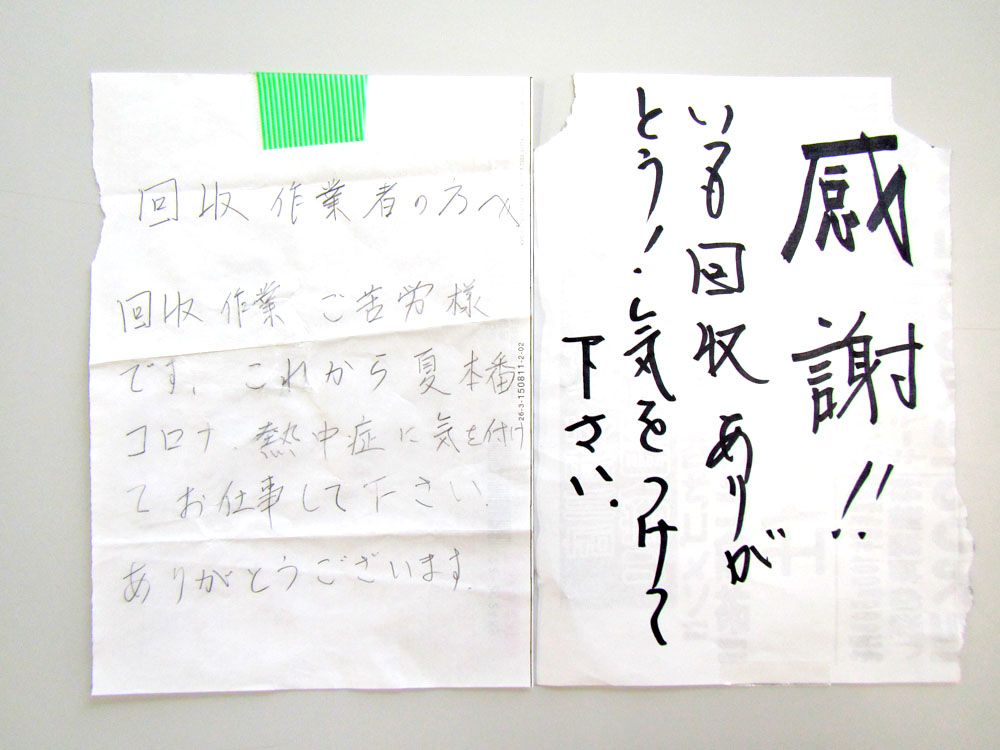 回収作業者の方へ
回収作業、ご苦労様
です。これから夏本番
コロナ、熱中症に気を付け
てお仕事して下さい.
ありがとうございます.
26-3-150811-2-02
感謝!!
いつも回収ありが
とう!気をつけて
下さい.